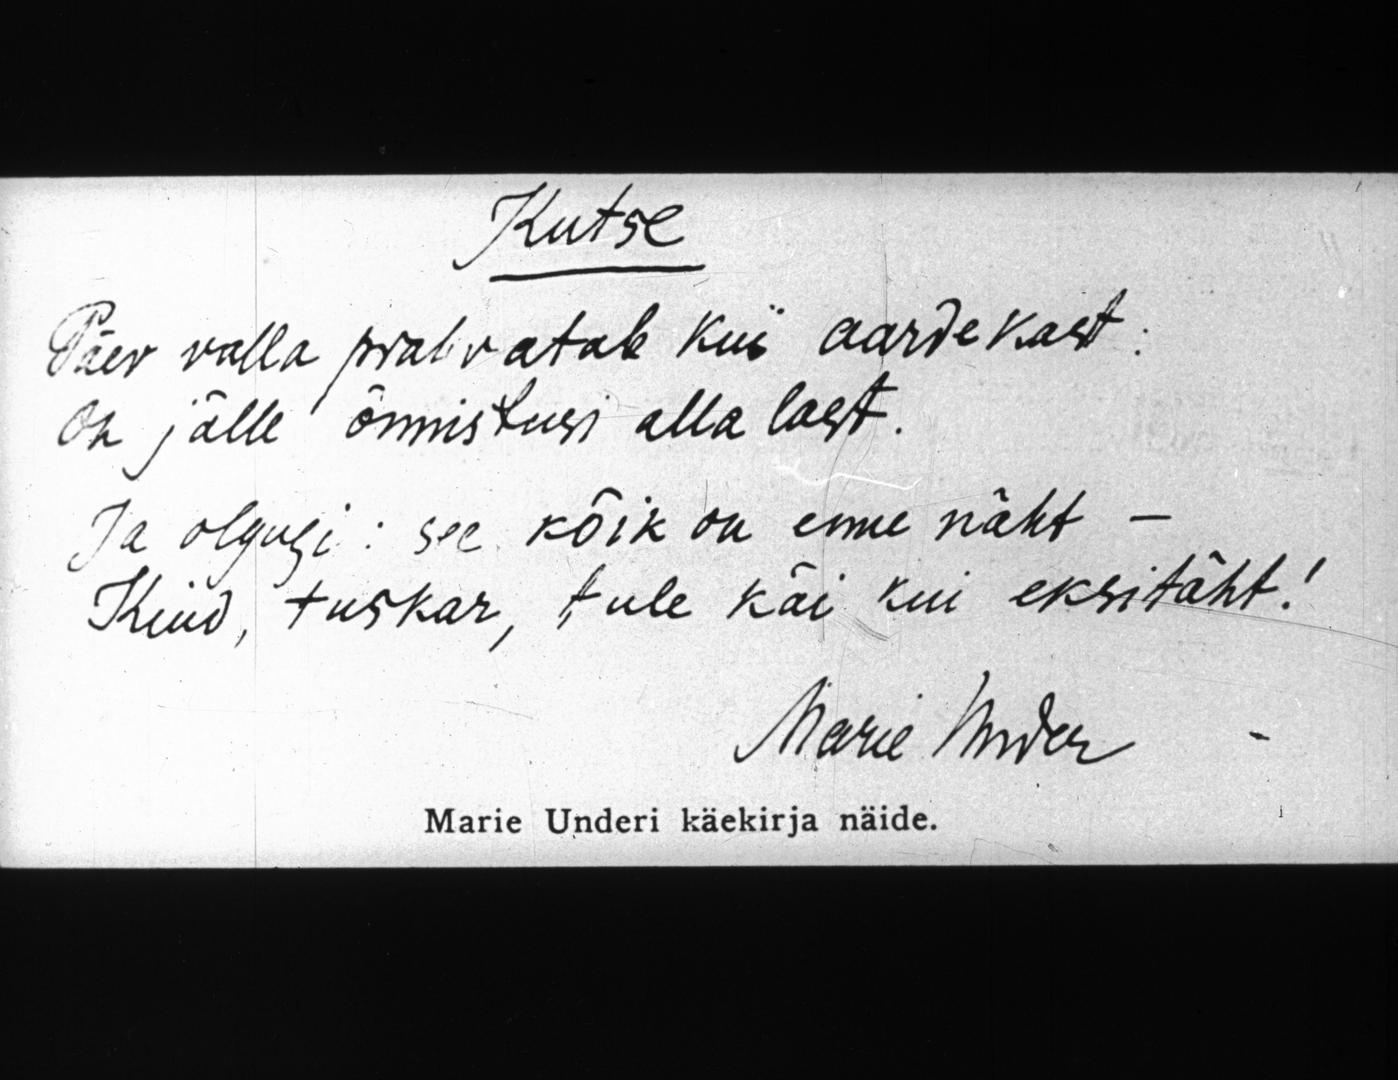 Kutse
Päev valla prahvatab kui aardekast:
On jälle õnnistusi alla last.
Ja olgugi: see kõik on enne näht —
Kuid, tuskar, tule käi kui eksitäht!
Marie Under
Marie Underi käekirja näide.